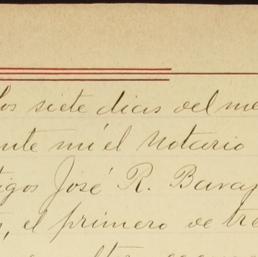 los siete dias del me
nte mí el Notario
igos José R. Barap
, el primero de tre